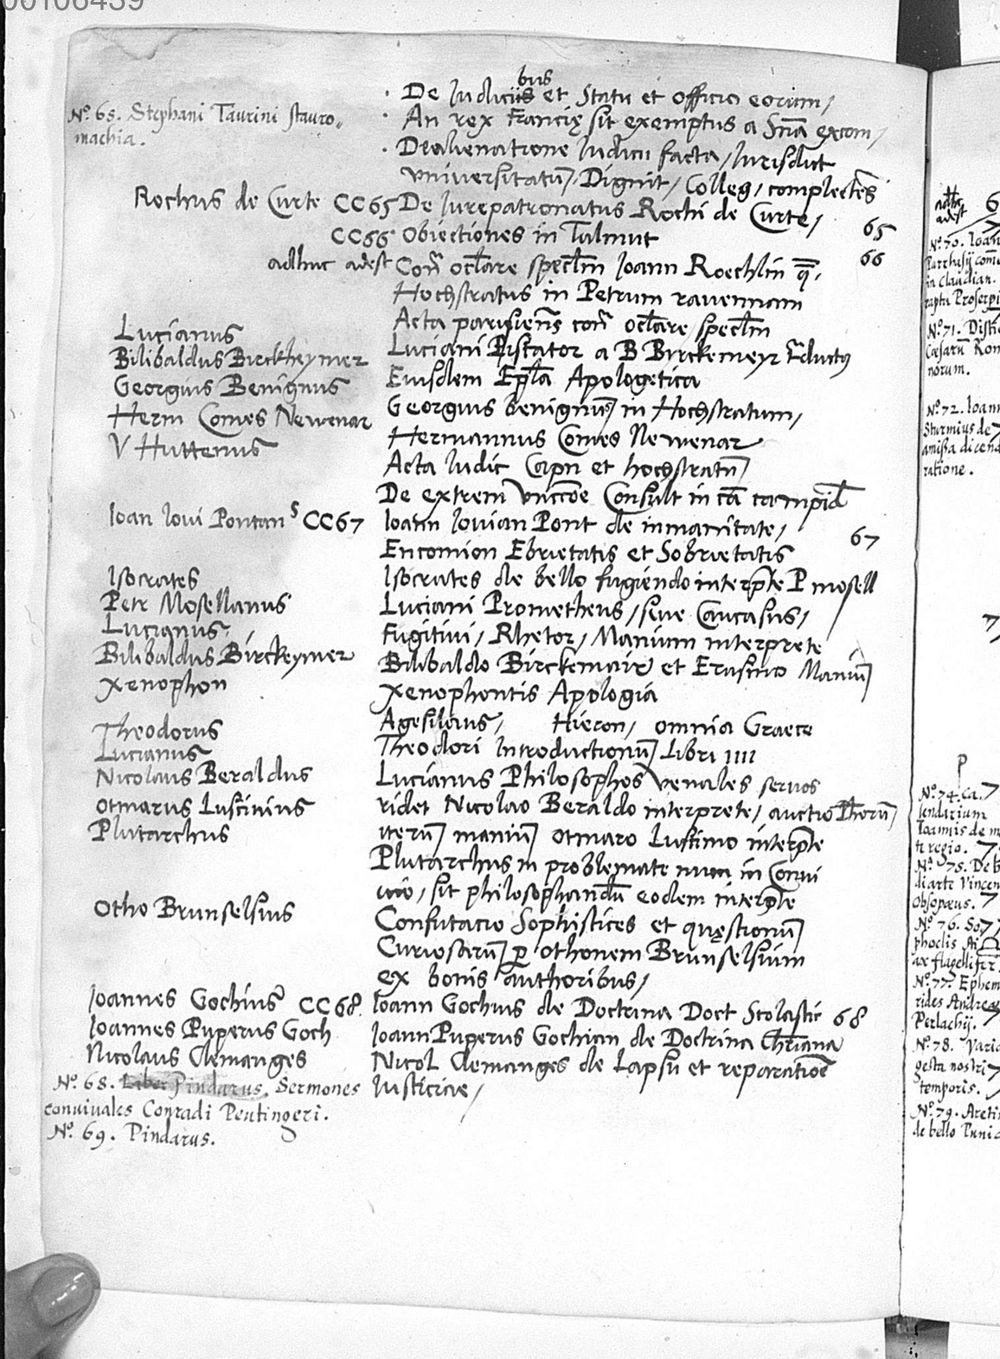 00106439
· De Iudiciis et Statu et officio eorum /
bus
Nº. 65. Stephani Taurini stauro-
machia.
· An rex Francię sit exemptus a Sñia excom /
· De alienatione Iudicii facta / Iurisdict
universitatũ / Dignit / Colleg / complectẽs
Rochus de Curte CC65 De Iurepatronatus Rochi de Curte / 65
CC66 Obiectiones in Talmut 66
adhuc adest Coñ oclare speclm Ioann Roechlin q̃.
Hochstratus in Petrum ravennam
Acta parisiens coñ oclare speclm
Lucianus Luciani Piscator a B Birckemeyr
Bilibaldus Birckheymer Eiusdem Epla Apologetica
Georgius Benignus Georgius benignus in Hochstratum /
Herm Comes Newenar Hermannus Comes Newenar
V Huttenus Acta Iudic Capn et hochstratũ
De extrem Consult in
Ioan Iovi Pontan CC67 Ioann Iovian Pont de inmanitate / 67
Encomion Ebrietatis et Sobrietatis
Isocrates Isocrates de bello fugiendo interpte P mosell
Petr Mosellanus Luciani Prometheus / seue Caucasus /
Lucianus Fugitivi / Rhetor / Manium interprete
Bilibaldus Birckeymer Bilibaldo Birckemair et Erasmo Maniũ
Xenophon Xenophontis Apologia
Agesilaus / Hieron / omnia Graece
Theodorus Theodori Introductionũ Libri IIII
Lucianus
Nicolaus Beraldus Lucianus Philosophos venales servos
Otmarus Luscinius ridet Nicolao Beraldo interprete / auctio
Plutarchus iterũ maniũ otmaro Luscinio interpte
Plutarchus in problemate num in Convi
vio / sit philosophandũ eodem interpte
Otho Brunselsius Confutatio Sophistices et quęstionũ
Curiosarũ p othonem Brunselsium
ex bonis authoribus /
Ioannes Gochius CC68 Ioann Gochius de Doctrina Doct Stolastic 68
Ioannes Puperus Goch Ioann Puperus Gochian de Doctrina Chriana
Nicolaus Clemanges Nicol Clemanges de Lapsu et reparatiõe
Iusticiae /
Nº. 68. Liber Pindarus. Sermones
convivales Conradi Peutingeri.
Nº. 69. Pindarus.
adhc
adest
Nº 70. Ioan
in Claudian.
raptu Proserpi
Nº 71. Disti
Cæsarũ Rom
norum.
Nº 72. Ioann
Sturmius de
amissa dicend
ratione.
P
Nº 74. Ca.
lendarium
Ioannis de m
te regio.
Nº 75. De b
di arte Vincen
Obsopæus.
Nº 76. So
phoclis Ai
ax flagellifer.
Nº 77. Ephem
rides Andreæ
Perlachij.
Nº 78. Varia
gesta nostri
temporis.
Nº 79. Areti
de bello Punic